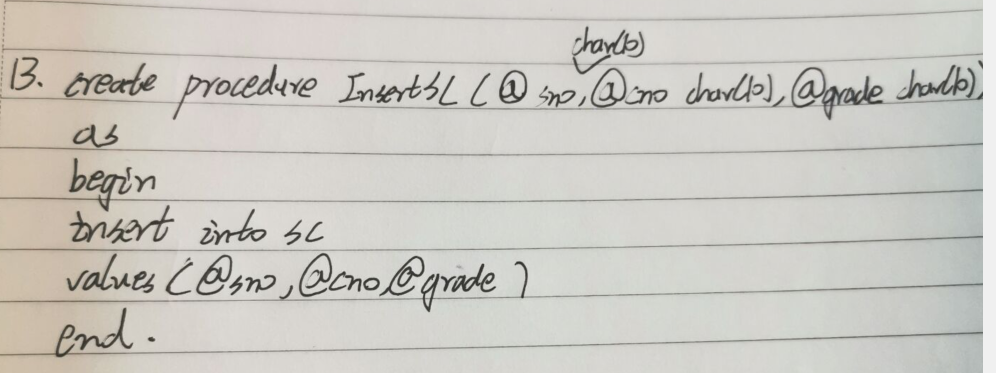 13. create procedure InsertSC (@sno char(10), @cno char(10), @grade char(10))
as
begin
insert into sc
values (@sno, @cno, @grade)
end.